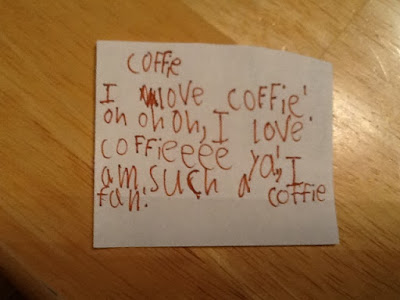 coffie
I love coffie!
oh oh oh, I love
coffieeee ya!, I
am such a coffie
fan.